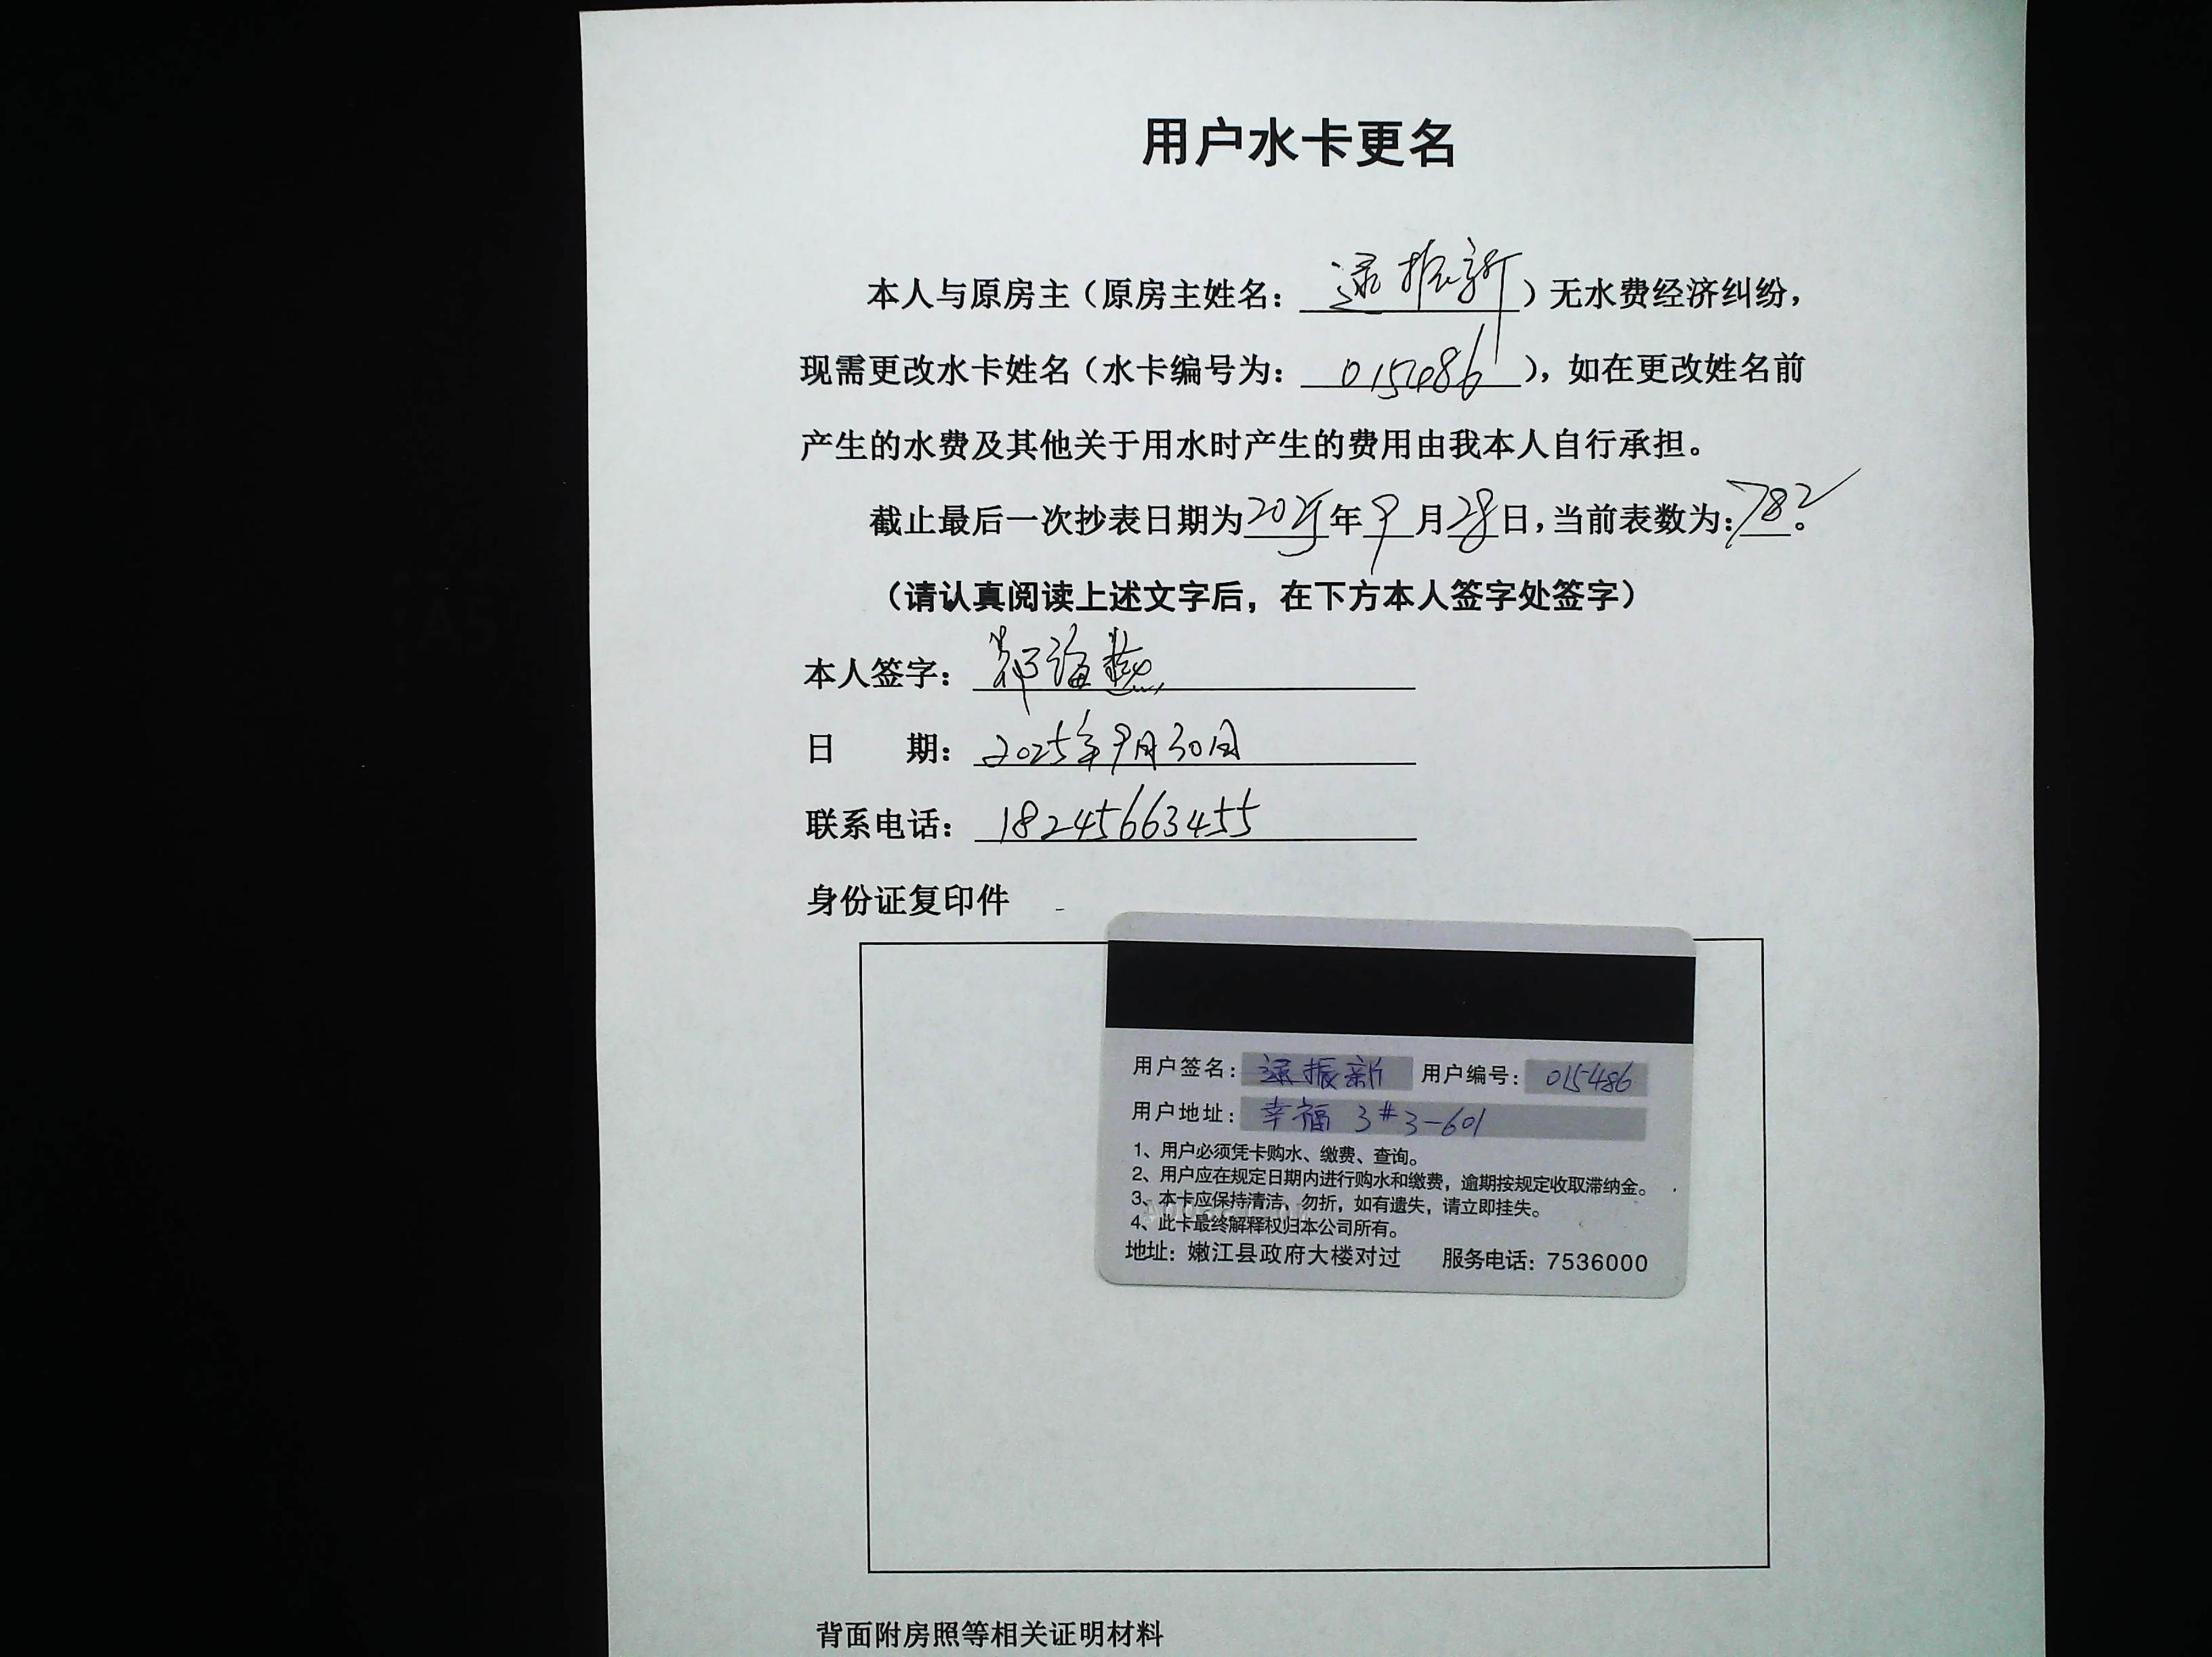 用户水卡更名
本人与原房主（原房主姓名：逯振新）无水费经济纠纷，
现需更改水卡姓名（水卡编号为：015486），如在更改姓名前
产生的水费及其他关于用水时产生的费用由我本人自行承担。
截止最后一次抄表日期为2025年9月28日，当前表数为：782。
（请认真阅读上述文字后，在下方本人签字处签字）
本人签字：郑海燕
日 期：2025年9月30日
联系电话：18245663455
身份证复印件
用户签名：逯振新 用户编号：015486
用户地址：幸福 3#3-601
1、用户必须凭卡购水、缴费、查询。
2、用户应在规定日期内进行购水和缴费，逾期按规定收取滞纳金。
3、本卡应保持清洁、勿折，如有遗失，请立即挂失。
4、此卡最终解释权归本公司所有。
地址：嫩江县政府大楼对过 服务电话：7536000
背面附房照等相关证明材料